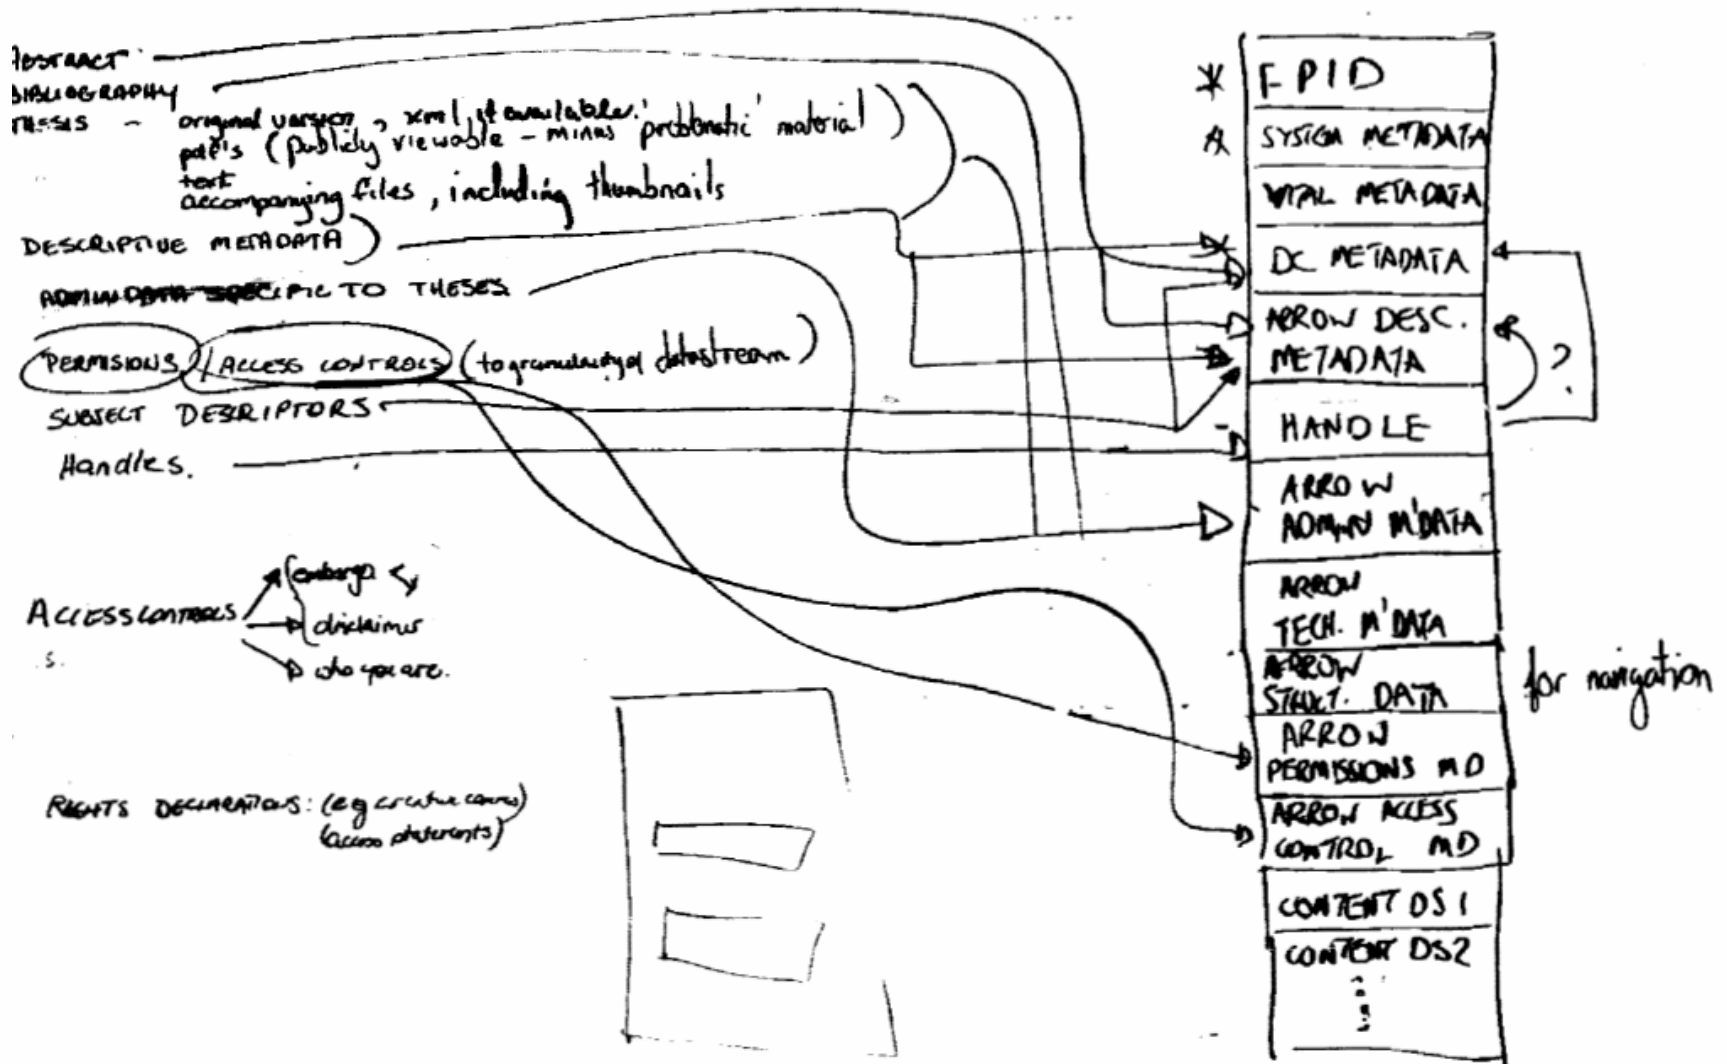 ABSTRACT
BIBLIOGRAPHY
THESIS - original version, xml, if available.
pdf's (publicly viewable - minus 'problematic' material)
text
accompanying files, including thumbnails
DESCRIPTIVE METADATA)
ADMIN DATA SPECIFIC TO THESES
PERMISIONS / ACCESS CONTROLS (to granularity of datastream)
SUBJECT DESCRIPTORS
Handles.
ACCESS CONTROLS
embargo
disclaimer
who you are.
RIGHTS DECLARATIONS: (eg creative commns)
(access statements)
* FPID
* SYSTEM METADATA
VITAL METADATA
DC METADATA
ARROW DESC.
METADATA
?
HANDLE
ARROW
ADMIN M'DATA
ARROW
TECH. M'DATA
ARROW
STRUCT. DATA
for navigation
ARROW
PERMISSIONS MD
ARROW ACCESS
CONTROL MD
CONTENT DS1
CONTENT DS2